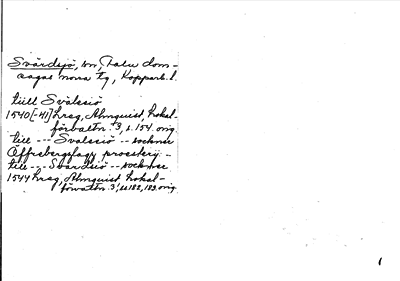 Svärdsjö, sn, Falu dom-
sagas norra tg, Kopparb. l.
tiill Svälssiö
1540[-41] hrsg, Almquist, Lokal-
förvaltn. 3, s. 154. orig.
till --- Svalssiö -- sockner
prosterij -
till --- Svardsiö -- sockner
1544 hrsg, Almquist Lokal-
förvaltn. 3, s. 182, 183. orig.